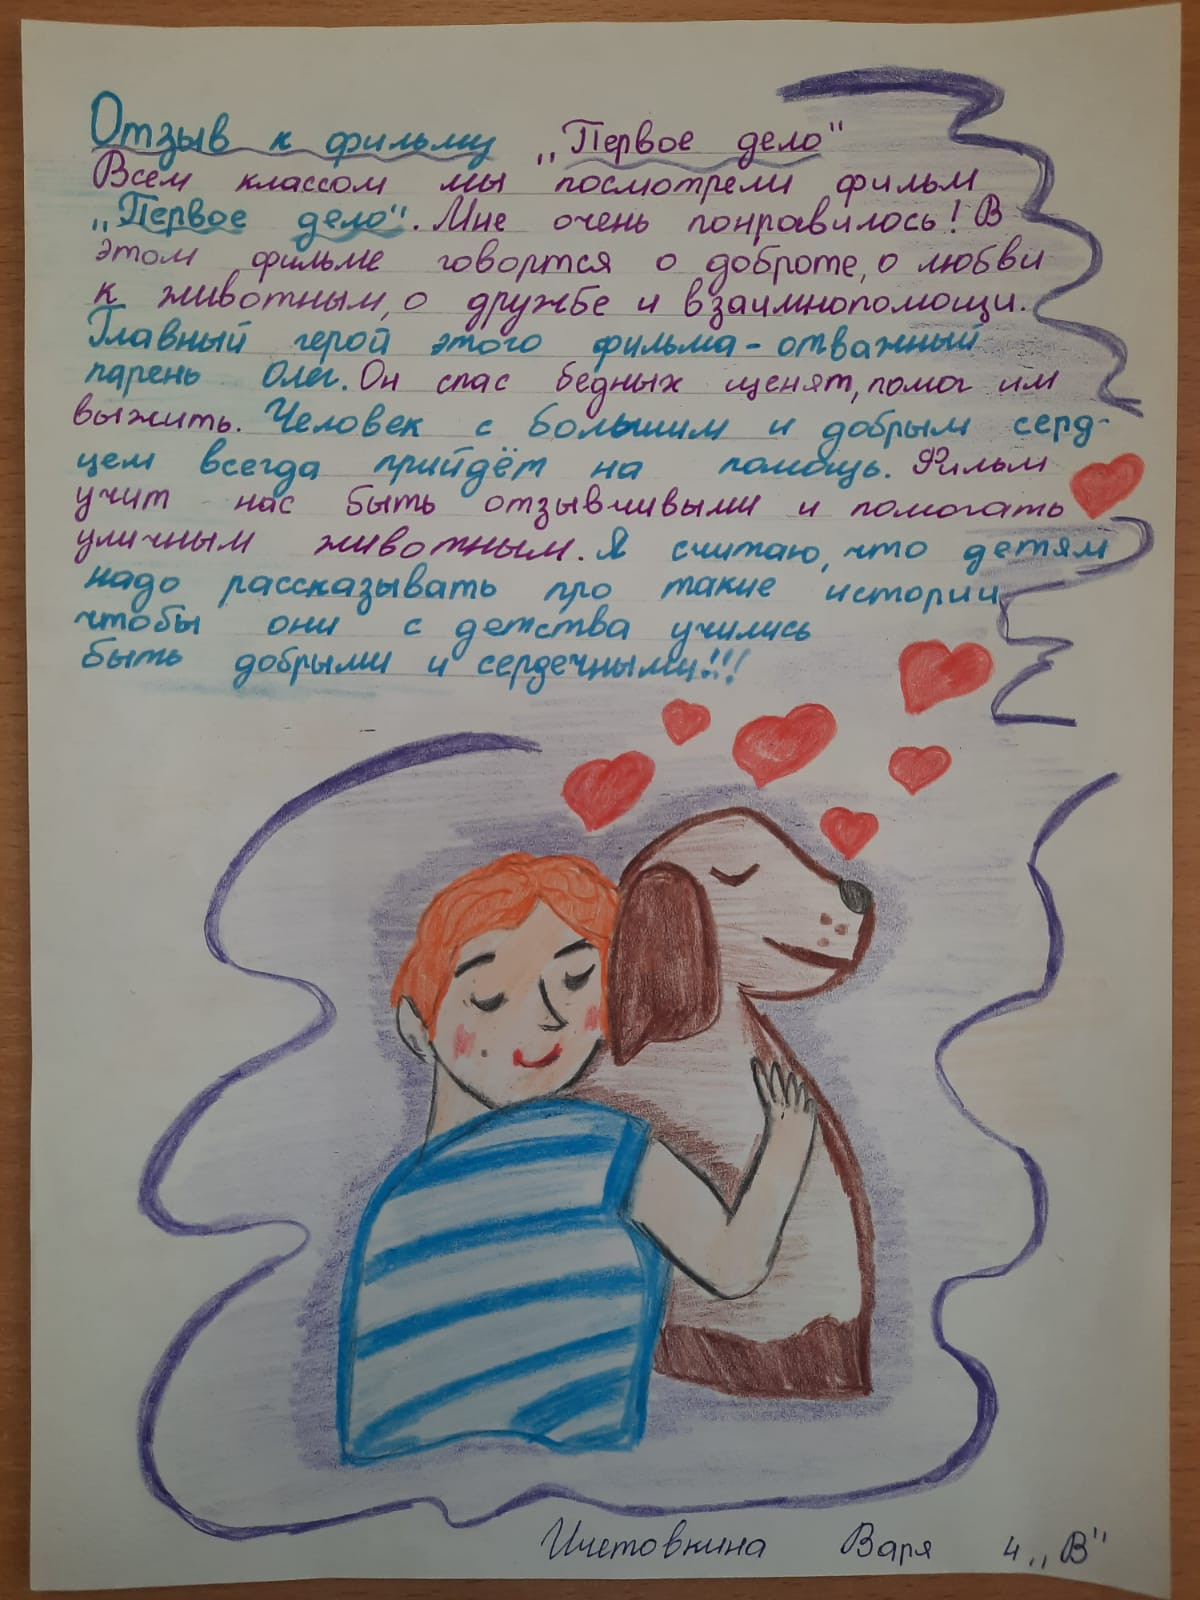 Отзыв к фильму „Первое дело"
Всем классом мы посмотрели фильм
„Первое дело". Мне очень понравилось! В
этом фильме говортся о доброте, о любви
к животным, о дружбе и взаимнопомощи.
Главный герой этого фильма - отважный
парень Олег. Он спас бедных щенят, помог им
выжить. Человек с большим и добрым серд-
цем всегда прийдёт на помощь. Фильм
учит нас быть отзывчивыми и помогать
уличным животным. Я считаю, что детям
надо рассказывать про такие истории,
чтобы они с детства учились
быть добрыми и сердечными!!!
Ичетовкина Варя 4 „В"